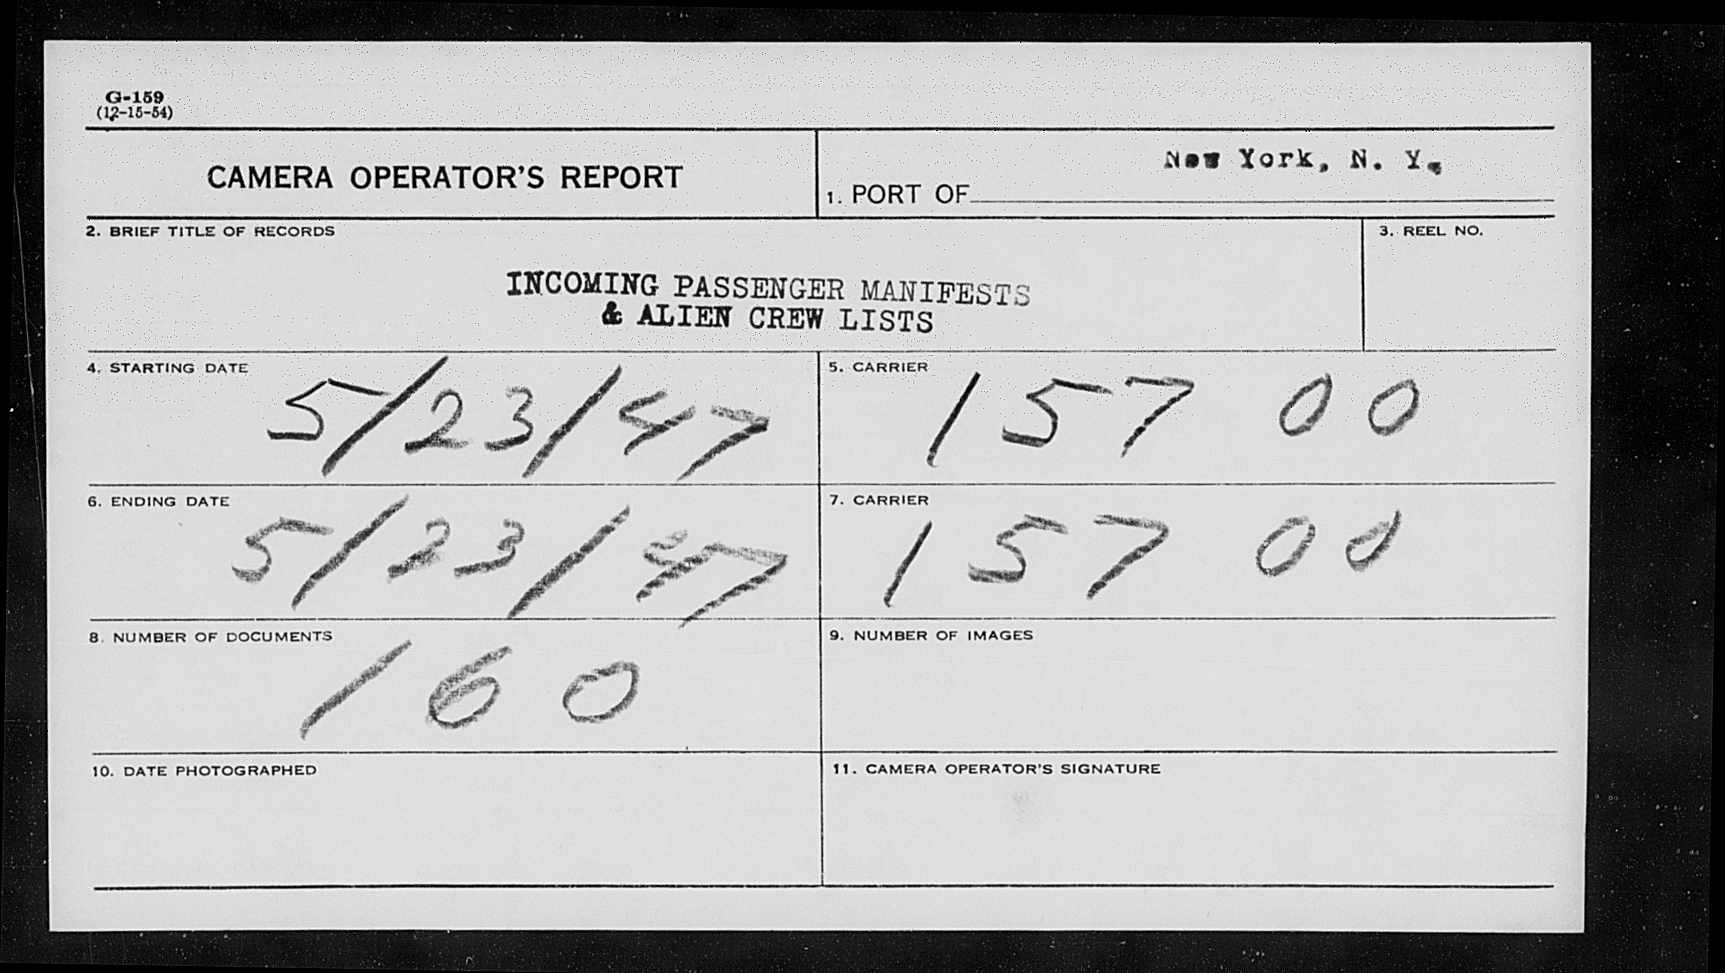 G-159
(12-15-54)
CAMERA OPERATOR'S REPORT
1. PORT OF New York, N. Y.
2. BRIEF TITLE OF RECORDS
3. REEL NO.
INCOMING PASSENGER MANIFESTS
& ALIEN CREW LISTS
4. STARTING DATE
5/23/47
5. CARRIER
157 00
6. ENDING DATE
5/23/47
7. CARRIER
157 00
8. NUMBER OF DOCUMENTS
160
9. NUMBER OF IMAGES
10. DATE PHOTOGRAPHED
11. CAMERA OPERATOR'S SIGNATURE